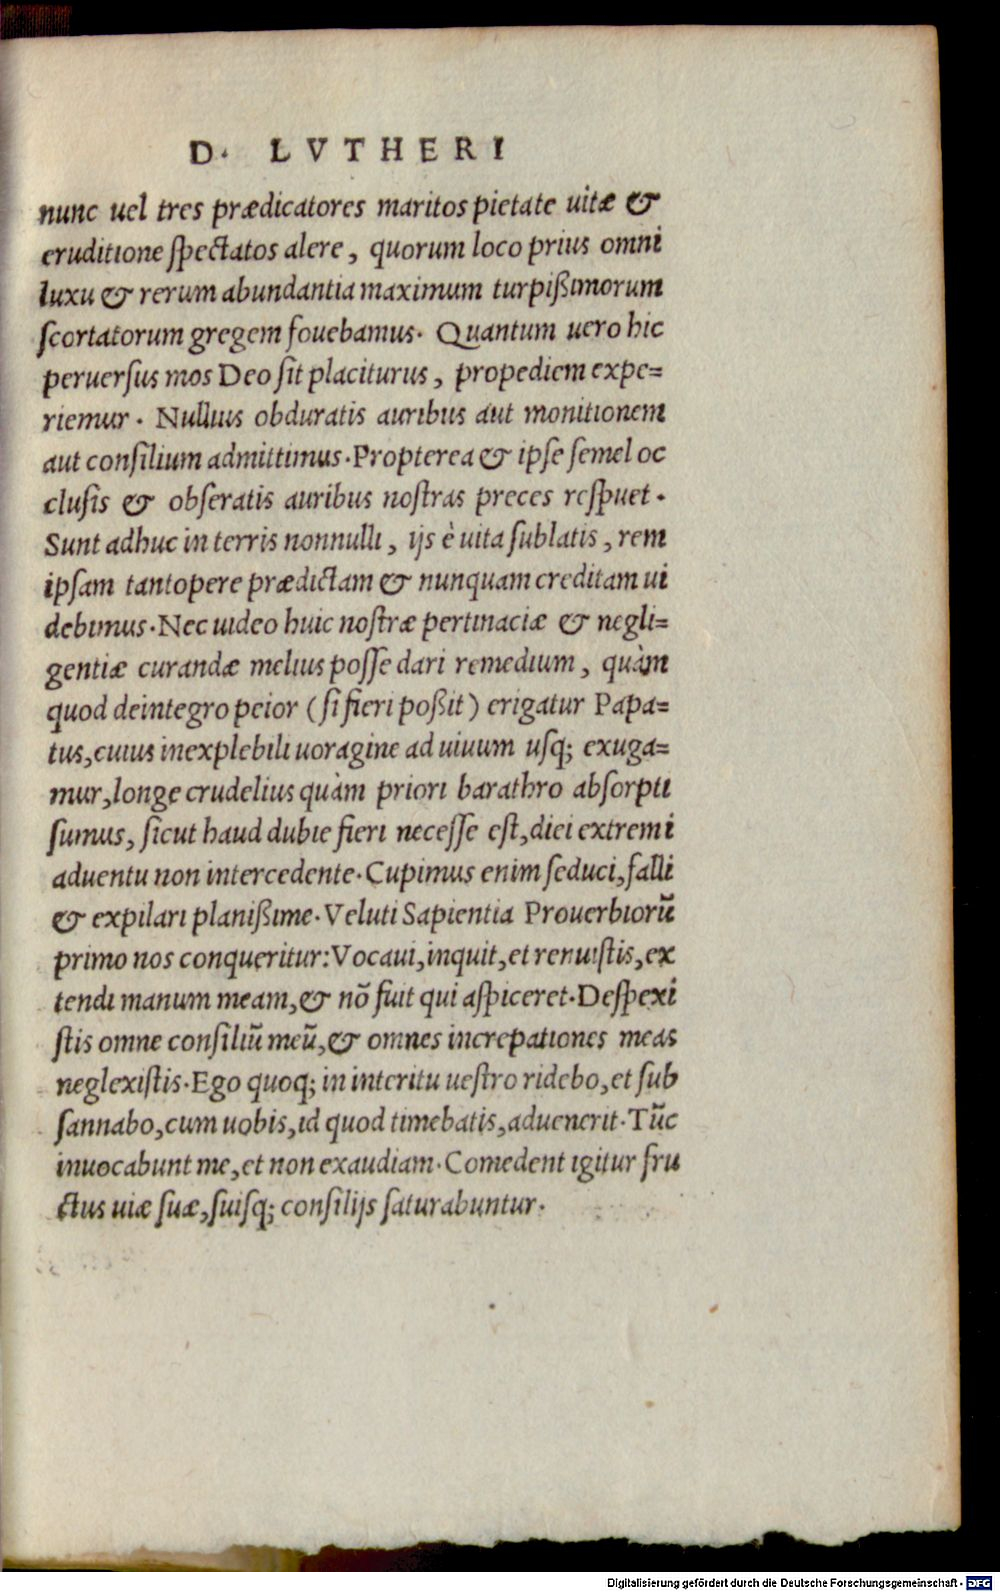 D. LVTHERI
nunc uel tres prædicatores maritos pietate uitæ &
eruditione ſpectatos alere, quorum loco prius omni
luxu & rerum abundantia maximum turpißimorum
ſcortatorum gregem fouebamus. Quantum uero hic
peruerſus mos Deo ſit placiturus, propediem expe=
riemur. Nullius obduratis auribus aut monitionem
aut conſilium admittimus. Propterea & ipſe ſemel oc
cluſis & obſeratis auribus noſtras preces reſpuet.
Sunt adhuc in terris nonnulli, ijs è uita ſublatis, rem
ipſam tantopere prædictam & nunquam creditam ui
debimus. Nec uideo huic noſtræ pertinaciæ & negli=
gentiæ curandæ melius poſſe dari remedium, quàm
quod deintegro peior (ſi fieri poßit) erigatur Papa=
tus, cuius inexplebili uoragine ad uiuum uſq; exuga=
mur, longe crudelius quàm priori barathro abſorpti
ſumus, ſicut haud dubie fieri neceſſe eſt, diei extremi
aduentu non intercedente. Cupimus enim ſeduci, falli
& expilari planißime. Veluti Sapientia Prouerbiorū
primo nos conqueritur: Vocaui, inquit, et renuiſtis, ex
tendi manum meam, & nō fuit qui aſpiceret. Deſpexi
ſtis omne conſiliū meū, & omnes increpationes meas
neglexiſtis. Ego quoq; in interitu ueſtro ridebo, et ſub
ſannabo, cum uobis, id quod timebatis, aduenerit. Tūc
inuocabunt me, et non exaudiam. Comedent igitur fru
ctus uiæ ſuæ, ſuiſq; conſilijs ſaturabuntur.
Digitalisierung gefördert durch die Deutsche Forschungsgemeinschaft - DFG